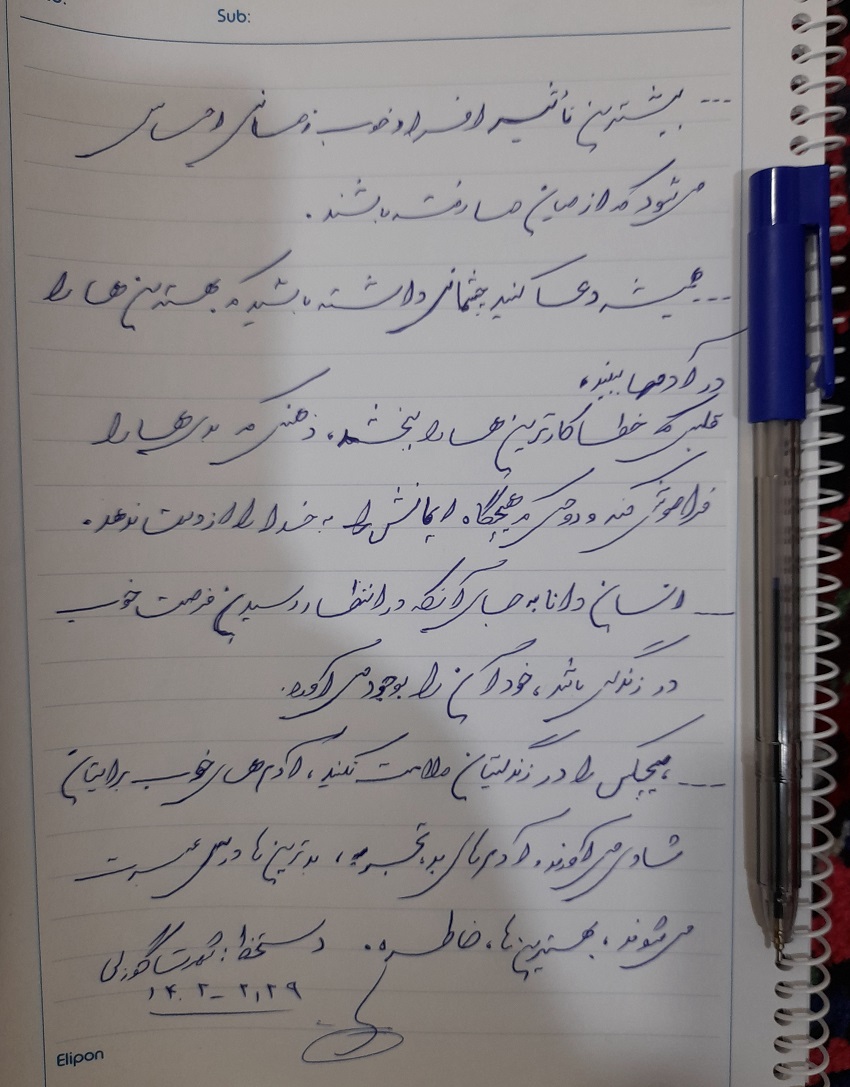 Sub:
--- بیشترین تأثیر افراد خوب زمانی احساس
می‌شود که از میان ما رفته باشند.
--- همیشه دعا کنید چشمانی داشته باشید که بهترین ها را
در آدمها ببیند،
قلبی که خطاکارترین ها را ببخشد، ذهنی که بدی‌ها را
فراموش کند و روحی که هیچگاه ایمانش را به خدا را از دست ندهد.
--- انسان دانا به جای آنکه در انتظار رسیدن فرصت خوب
در زندگی باشد، خود آن را بوجود می‌آورد.
--- هیچکس را در زندگیتان ملامت نکنید، آدم‌های خوب برایتان
شادی می‌آورند، آدم‌های بد، تجربه، بدترین‌ها درس عبرت
می‌شوند، بهترین‌ها، خاطره. دستخط:
۱۴۰۲-۲،۲۹
Elipon